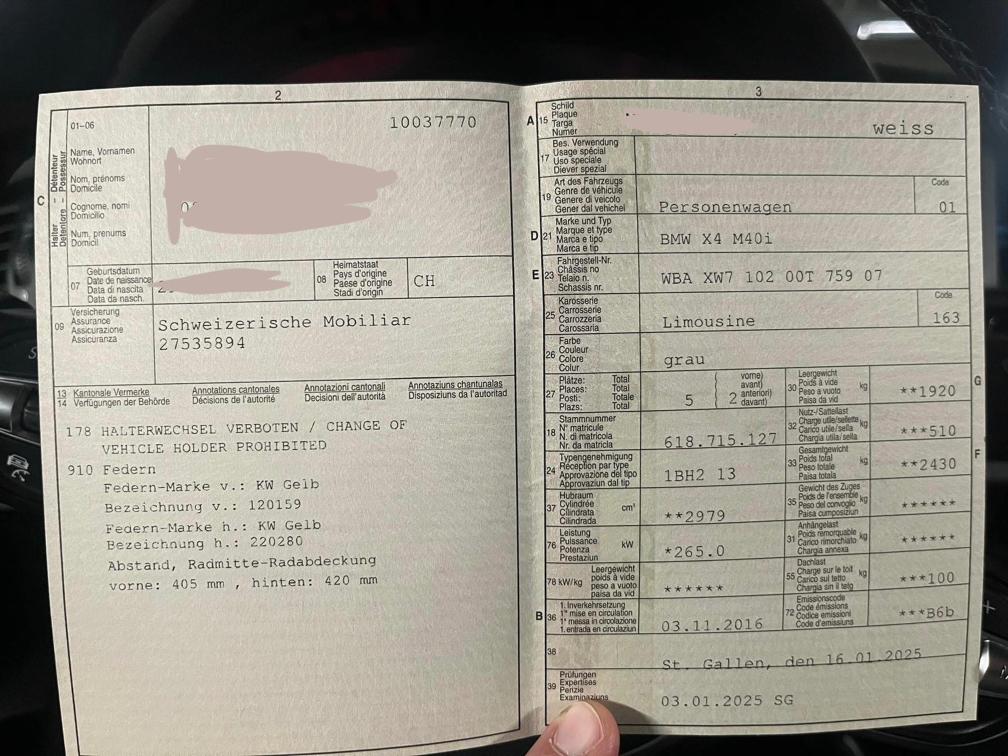 2
01-06
10037770
C
Halter - Détenteur
Detentore - Possessur
Name, Vornamen
Wohnort
Nom, prénoms
Domicile
Cognome, nomi
Domicilio
Num, prenums
Domicil
07
Geburtsdatum
Date de naissance
Data di nascita
Data da nasch.
08
Heimatstaat
Pays d'origine
Paese d'origine
Stadi d'origin
CH
09
Versicherung
Assurance
Assicurazione
Assicuranza
Schweizerische Mobiliar
27535894
13 Kantonale Vermerke Annotations cantonales Annotazioni cantonali Annotaziuns chantunalas
14 Verfügungen der Behörde Décisions de l'autorité Decisioni dell'autorità Disposiziuns da l'autoritad
178 HALTERWECHSEL VERBOTEN / CHANGE OF
VEHICLE HOLDER PROHIBITED
910 Federn
Federn-Marke v.: KW Gelb
Bezeichnung v.: 120159
Federn-Marke h.: KW Gelb
Bezeichnung h.: 220280
Abstand, Radmitte-Radabdeckung
vorne: 405 mm , hinten: 420 mm
3
A 15
Schild
Plaque
Targa
Numer
weiss
17
Bes. Verwendung
Usage spécial
Uso speciale
Diever spezial
19
Art des Fahrzeugs
Genre de véhicule
Genere di veicolo
Gener dal vehichel
Personenwagen
Code
01
D 21
Marke und Typ
Marque et type
Marca e tipo
Marca e tip
BMW X4 M40i
E 23
Fahrgestell-Nr.
Châssis no
Telaio n.
Schassis nr.
WBA XW7 102 00T 759 07
25
Karosserie
Carrosserie
Carrozzeria
Carossaria
Limousine
Code
163
26
Farbe
Couleur
Colore
Colur
grau
27
Plätze: Total
Places: Total
Posti: Totale
Plazs: Total
5
2
vorne)
avant)
anteriori)
davant)
30
Leergewicht
Poids à vide
Peso a vuoto
Paisa da vid
kg
**1920
G
18
Stammnummer
N° matricule
N. di matricola
Nr. da matricla
618.715.127
32
Nutz-/Sattellast
Charge utile/sellette
Carico utile/sella
Chargia utila/sella
kg
***510
24
Typengenehmigung
Réception par type
Approvazione del tipo
Approvaziun dal tip
1BH2 13
33
Gesamtgewicht
Poids total
Peso totale
Paisa totala
kg
**2430
F
37
Hubraum
Cylindrée
Cilindrata
Cilindrada
cm³
**2979
35
Gewicht des Zuges
Poids de l'ensemble
Peso del convoglio
Paisa cumposiziun
kg
******
76
Leistung
Puissance
Potenza
Prestaziun
kW
*265.0
31
Anhängelast
Poids remorquable
Carico rimorchiato
Chargia annexa
kg
******
78 kW/kg
Leergewicht
poids à vide
peso a vuoto
paisa da vid
******
55
Dachlast
Charge sur le toit
Carico sul tetto
Chargia sin il tetg
kg
***100
B 36
1. Inverkehrsetzung
1re mise en circulation
1a messa in circolazione
1. entrada en circulaziun
03.11.2016
72
Emissionscode
Code émissions
Codice emissioni
Code d'emissiuns
***B6b
38
St. Gallen, den 16.01.2025
39
Prüfungen
Expertises
Perizie
Examinaziuns
03.01.2025 SG